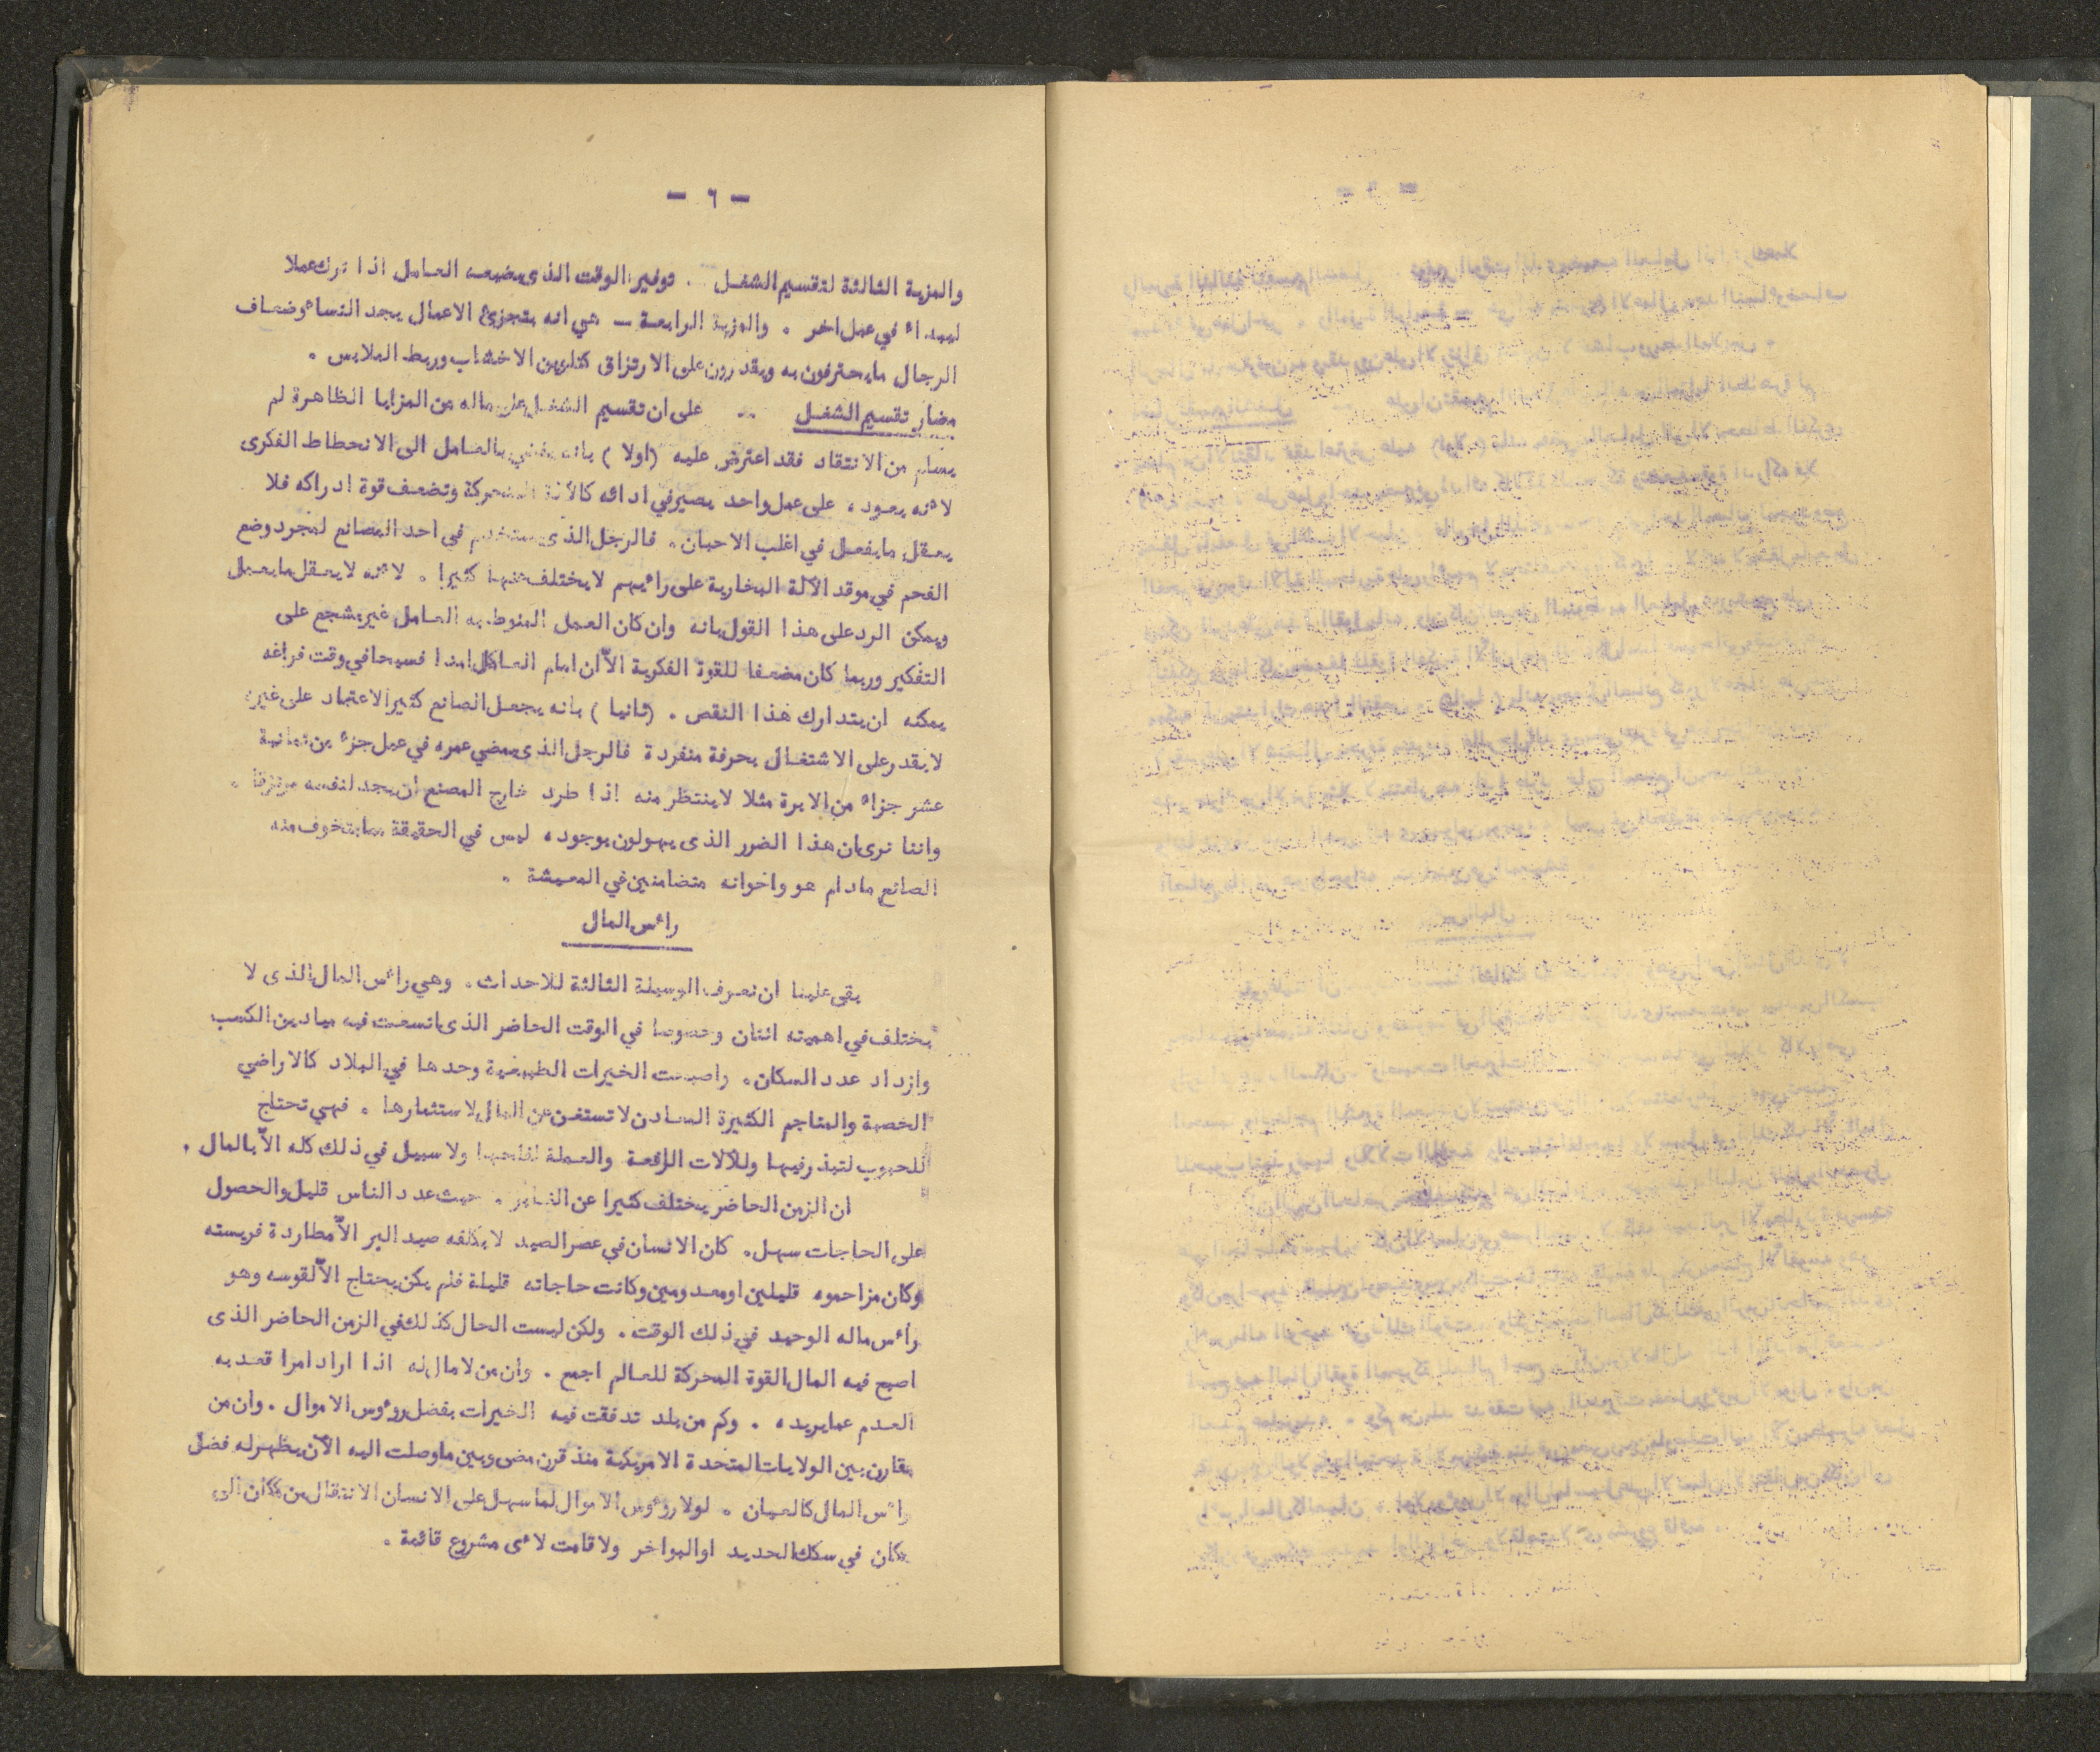 - ٦ -
والمزية الثالثة لتقسيم الشغل . توفير الوقت الذى يضيعه العامل اذا ترك عملا
ليبداء في عمل اخر . والمزية الرابعة - هي انه بتجزئ الاعمال يجد النساء وضعاف
الرجال ما يحترفون به ويقدرون على الارتزاق كتلوين الاخشاب وربط الملابس .
مضار تقسيم الشغل - على ان تقسيم الشغل على ماله من المزايا الظاهرة لم
يسلم من الانتقاد فقد اعترض عليه (اولا ) بانه يفضي بالعامل الى الانحطاط الفكرى
لاءنه يعوده على عمل واحد يصير في ادائه كالآلة المتحركة وتضعف قوة ادراكه فلا
يعقل ما يفعل في اغلب الاحيان . فالرجل الذى يستخدم فى احد المصانع لمجرد وضع
الفحم في موقد الآلة البخارية على راءيهم لا يختلف عنها كثيرا . لاءنه لا يعقل ما يعمل
ويمكن الرد على هذا القول بانه وان كان العمل المنوط به العامل غير مشجع على
التفكير وربما كان مضعفا للقوة الفكرية الاّ ان امام العامل امدا فسيحا في وقت فراغه
يمكنه ان يتدارك هذا النقص . (ثانيا ) بانه يجعل الصانع كثير الاعتماد على غيره
لا يقدر على الاشتغال بحرفة منفردة فالرجل الذى يمضي عمره في عمل جزء من ثمانية
عشر جزاء من الابرة مثلا لا ينتظر منه اذا طرد خارج المصنع ان يجد لنفسه مرتزقا .
واننا نرى ان هذا الضرر الذى يهولون بوجوده ليس في الحقيقة مما يتخوف منه
الصانع مادام هو واخوانه متضامنين في المعيشة .
راءس المال
بقى علينا ان نعرف الوسيلة الثالثة للاحداث . وهي راءس المال الذى لا
يختلف في اهميته اثنان وخصوصا في الوقت الحاضر الذى اتسعت فيه ميادين الكسب
وازداد عدد السكان . واصبحت الخيرات الطبيعية وحدها في البلاد كالاراضي
الخصبة والمناجم الكثيرة المعادن لا تستغن عن المال لاستثمارها . فهي تحتاج
للحبوب لتبذر فيها وللآلات الرافعة والعملة لفلحها ولا سبيل في ذلك كله الاّ بالمال .
ان الزمن الحاضر يختلف كثيرا عن الغابر . حيث عدد الناس قليل والحصول
على الحاجات سهل . كان الانسان في عصر الصيد لا يكلفه صيد البر الاّ مطاردة فريسته
وكان مزاحموه قليلين او معدومين وكانت حاجاته قليلة فلم يكن يحتاج الاّ لقوسه وهو
راءس ماله الوحيد في ذلك الوقت . ولكن ليست الحال كذلك في الزمن الحاضر الذى
اصبح فيه المال القوة المحركة للعالم اجمع . وان من لا مال له اذا اراد امرا قعد به
العدم عما يريده . وكم من بلد تدفقت فيه الخيرات بفضل رؤوس الاموال . وان من
يقارن بين الولايات المتحدة الامريكية منذ قرن مضى وبين ما وصلت اليه الآن يظهر له فضل
راءس المال كالعيان . لولا رؤوس الاموال لما سهل على الانسان الانتقال من مكان الى
مكان في سكك الحديد او البواخر ولا قامت لاءى مشروع قائمة .